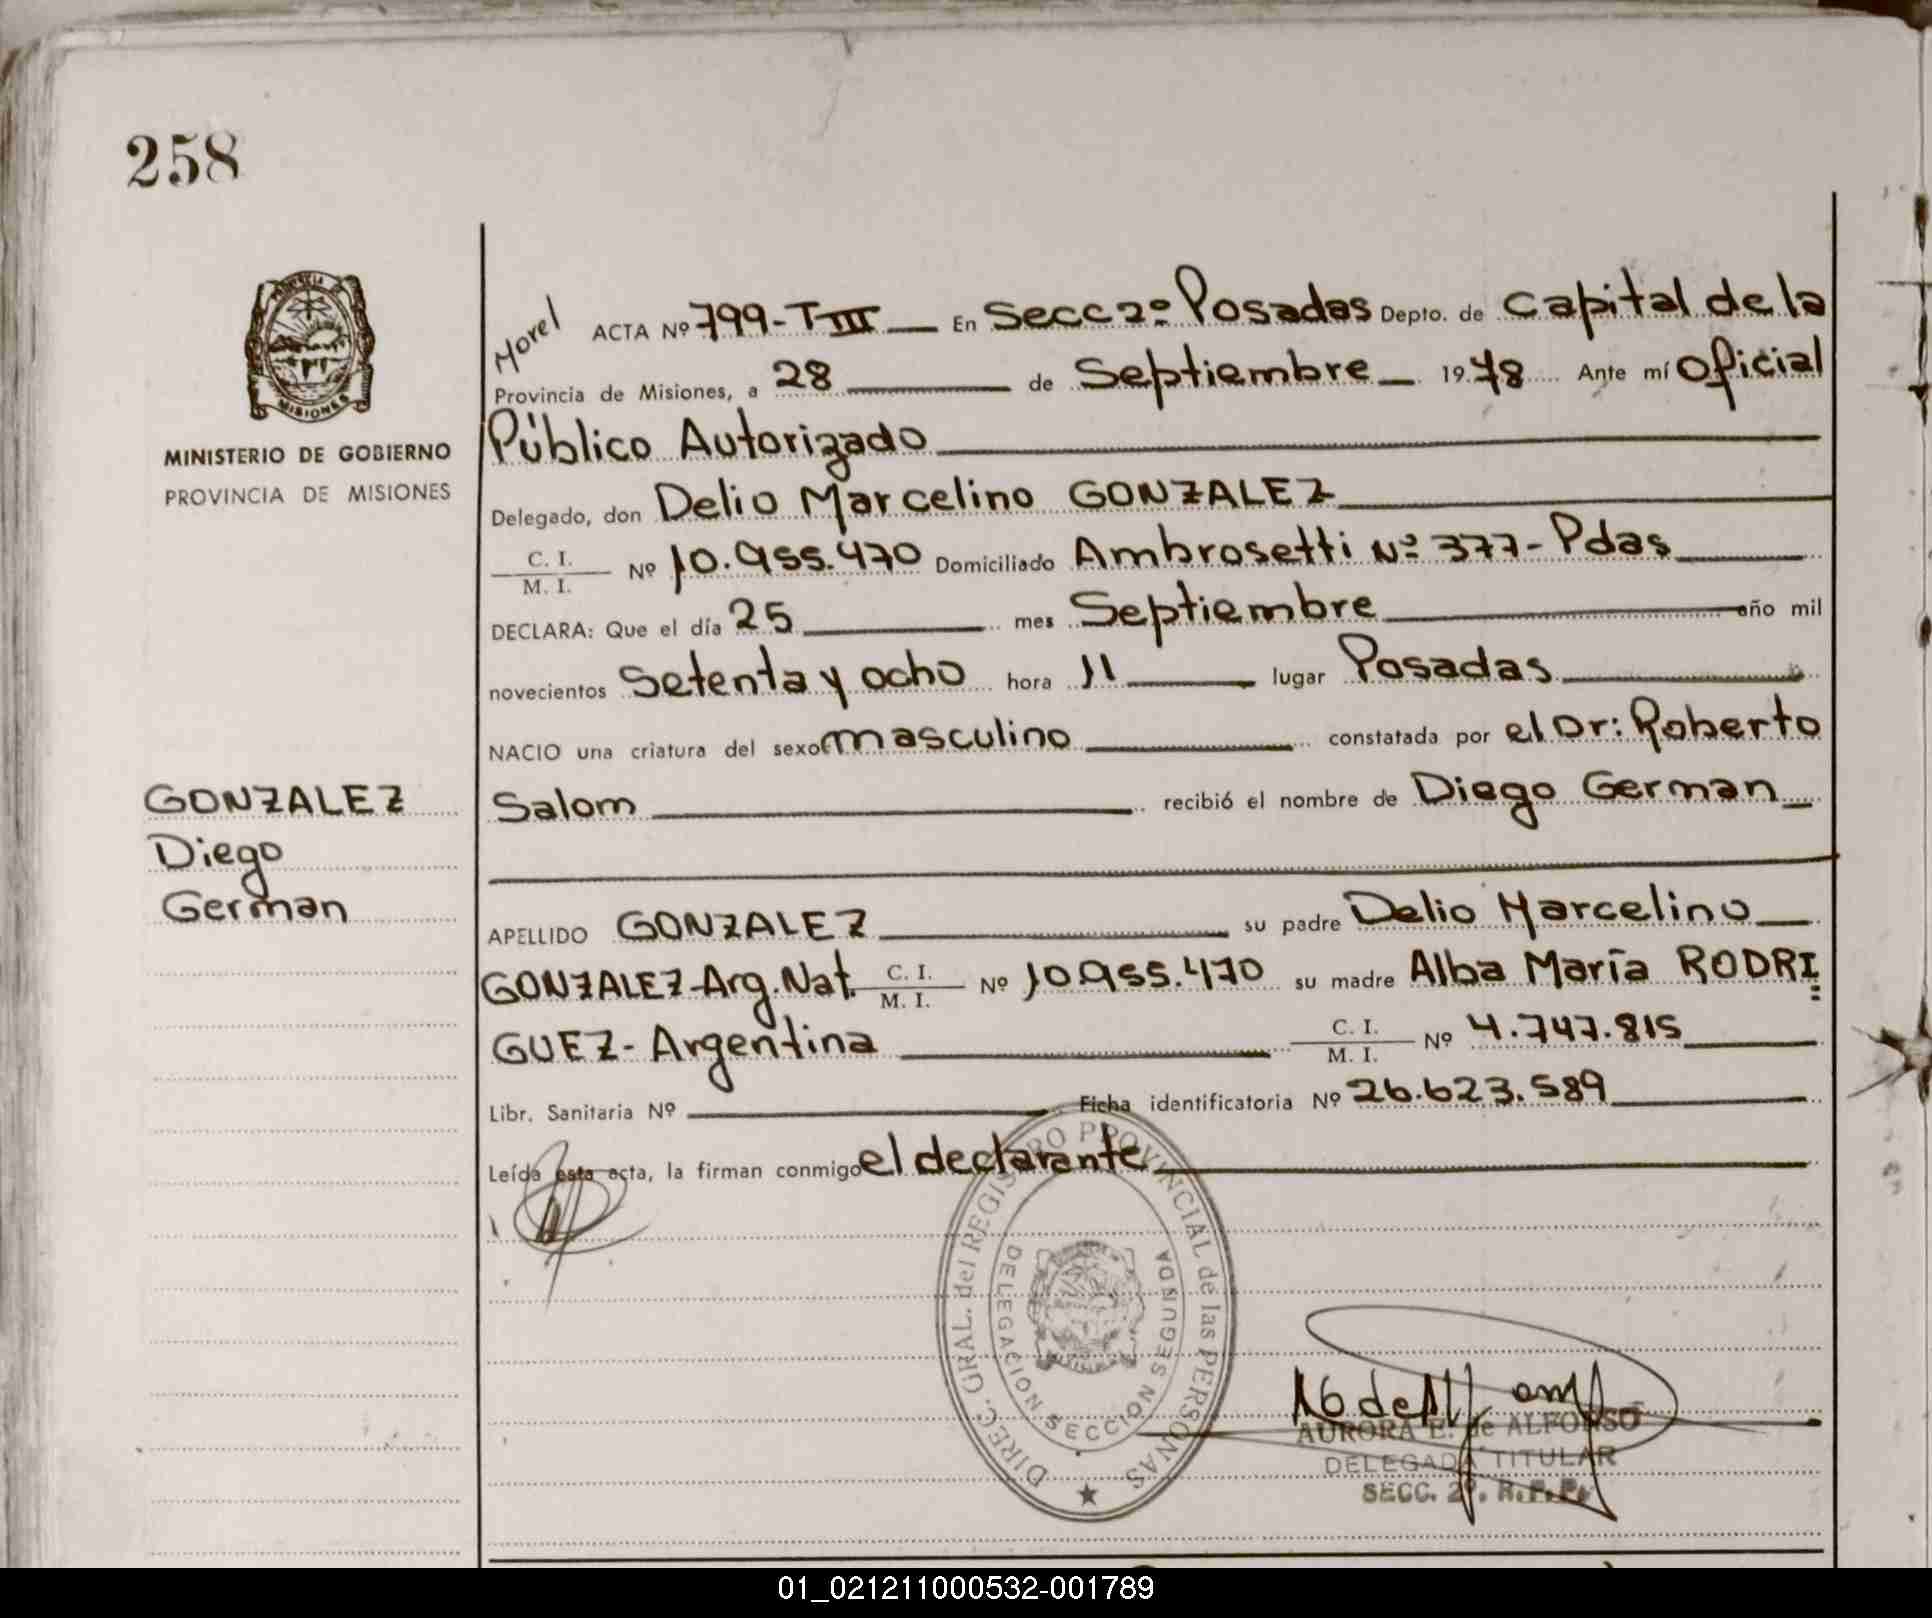 258
MISIONES
MINISTERIO DE GOBIERNO
PROVINCIA DE MISIONES
Morel ACTA Nº 799-T III En Secc 2º Posadas Depto. de Capital de la
Provincia de Misiones, a 28 de Septiembre 1978 Ante mí Oficial
Público Autorizado
Delegado, don Delio Marcelino GONZALEZ
C. I.
M. I. Nº 10.955.470 Domiciliado Ambrosetti Nº 377-Pdas
DECLARA: Que el día 25 mes Septiembre año mil
novecientos Setenta y ocho hora 11 lugar Posadas
NACIO una criatura del sexo masculino constatada por el Dr: Roberto
Salom recibió el nombre de Diego German
GONZALEZ
Diego
German
APELLIDO GONZALEZ su padre Delio Marcelino
GONZALEZ-Arg.Nat. C. I.
M. I. Nº 10.955.470 su madre Alba María RODRI
GUEZ- Argentina C. I.
M. I. Nº 4.747.815
Libr. Sanitaria Nº Ficha identificatoria Nº 26.623.589
Leída esta acta, la firman conmigo el declarante
DIREC. GRAL. del REGISTRO PROVINCIAL de las PERSONAS
DELEGACION SECCION SEGUNDA
AURORA E. de ALFONSO
DELEGADA TITULAR
SECC. 2º. R.P.P.
01_021211000532-001789